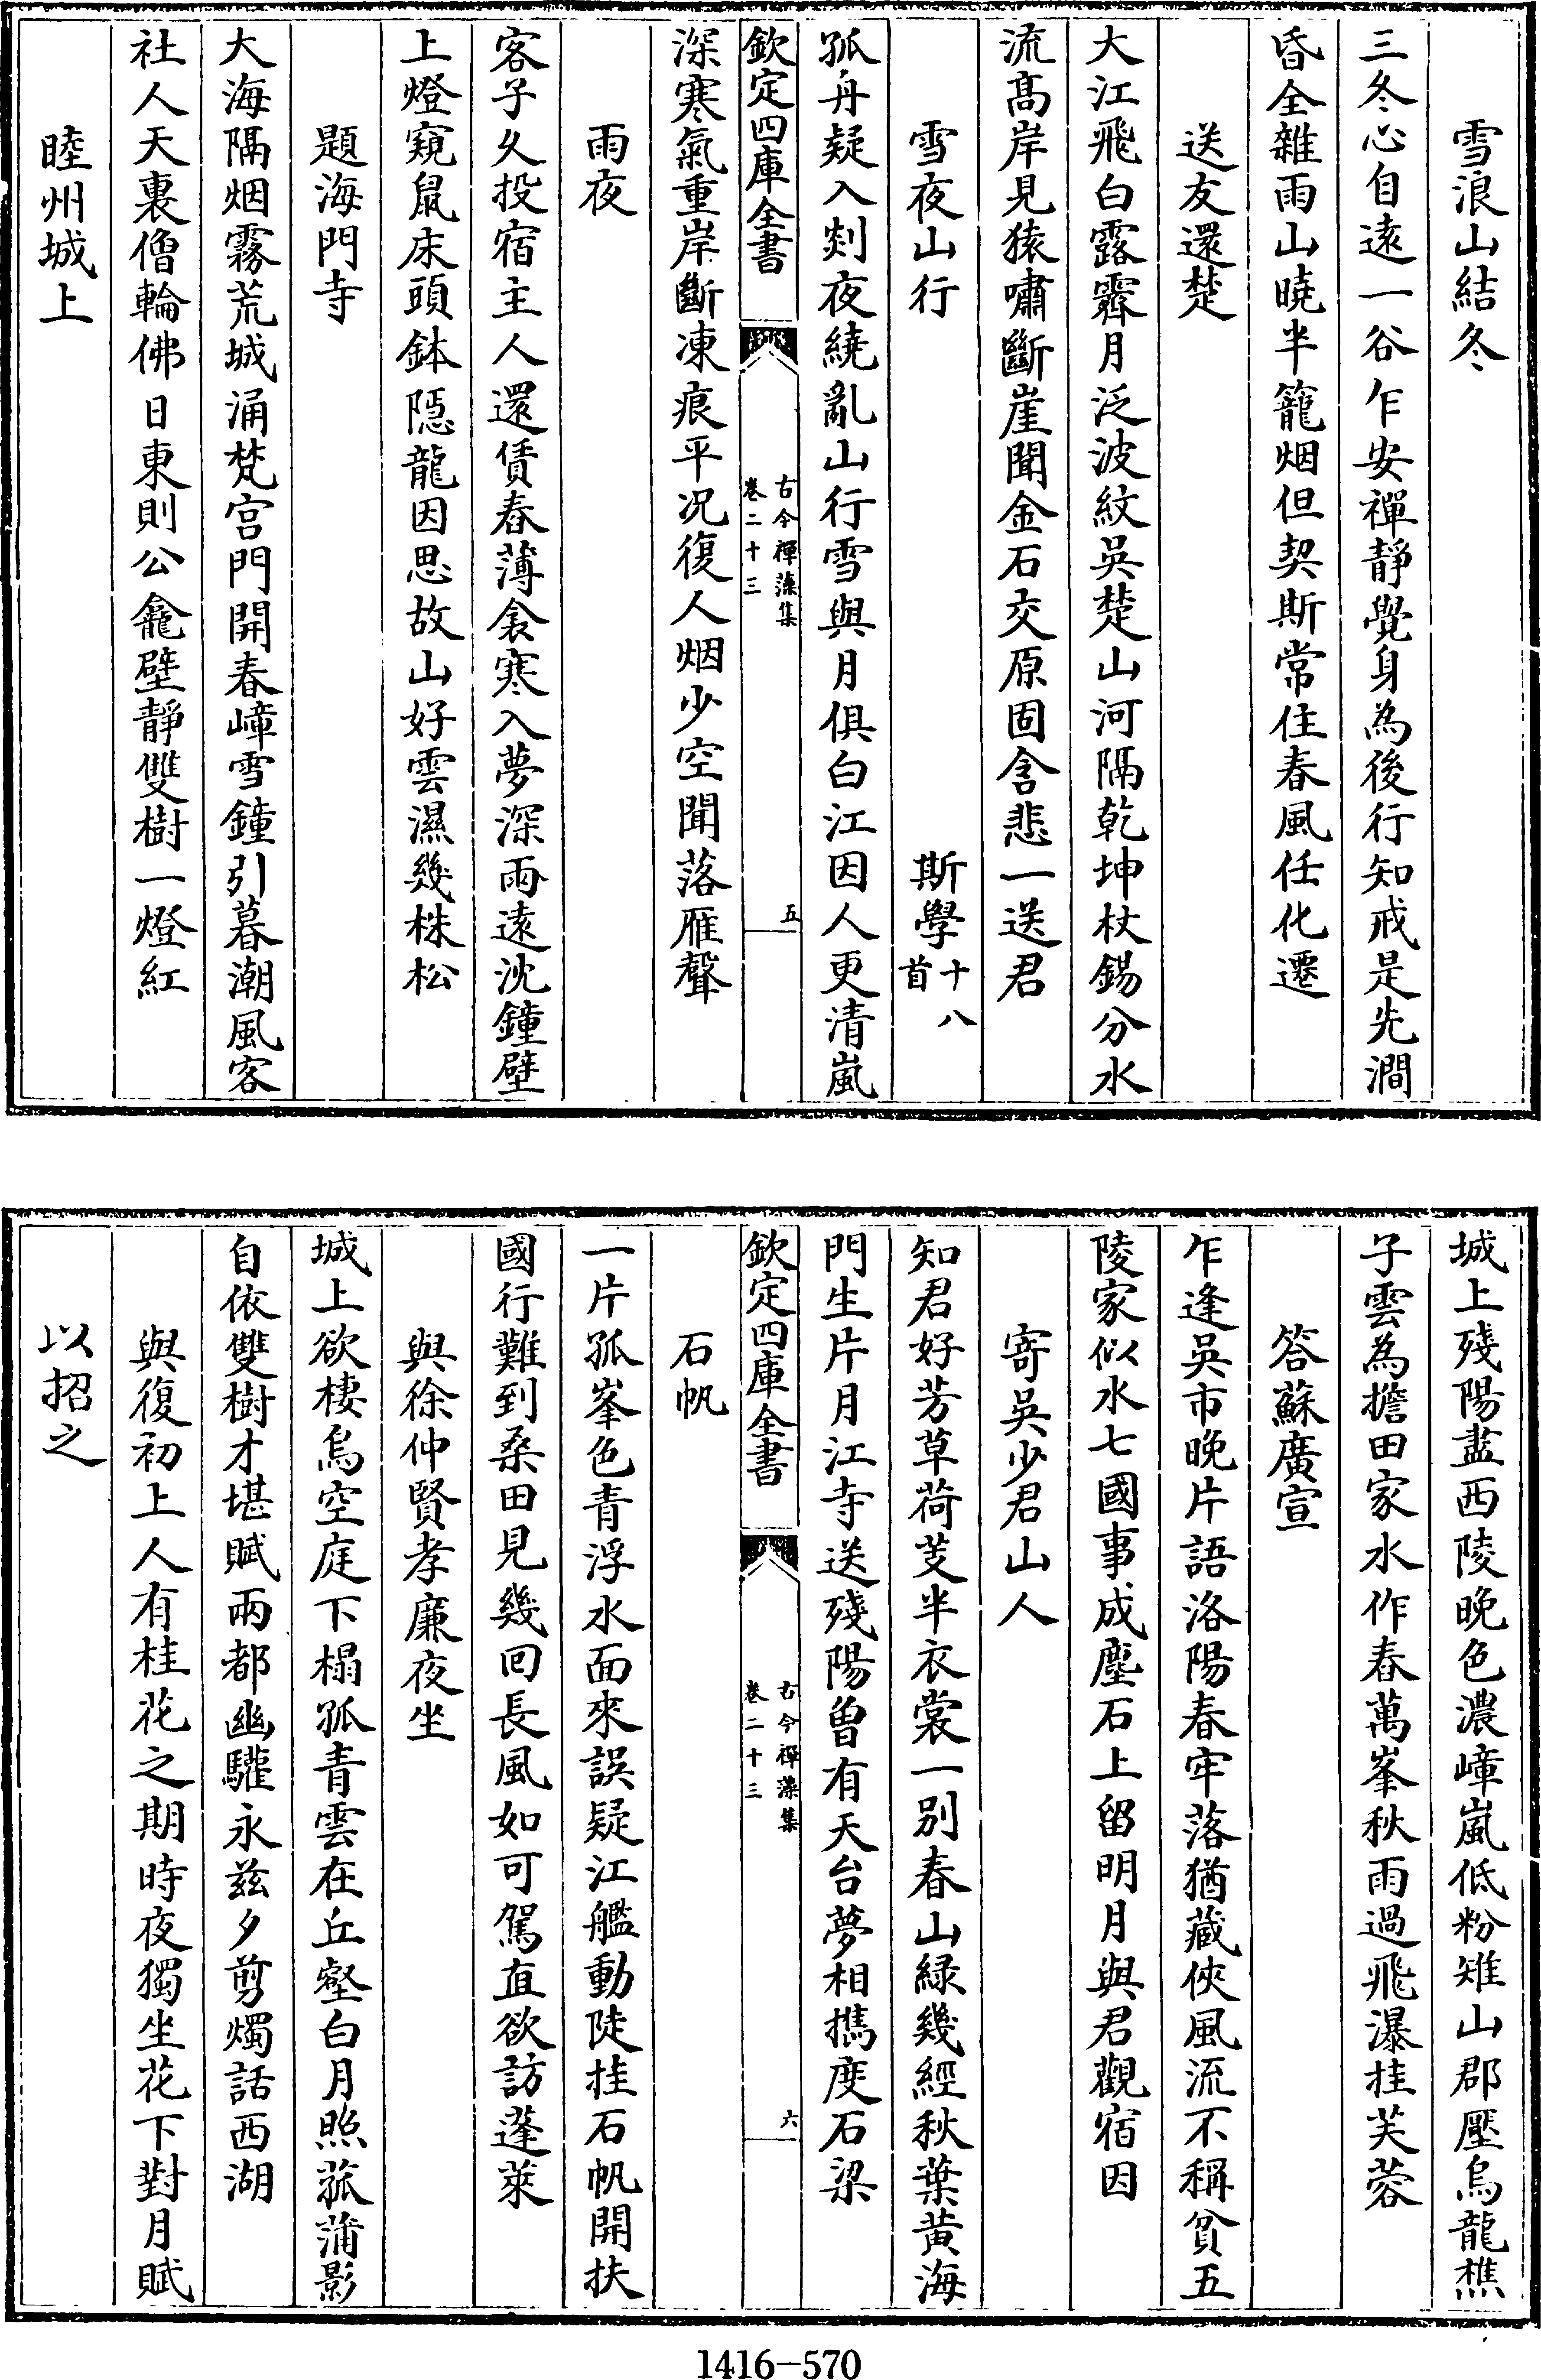 雪浪山結冬
三冬心自逺一谷乍安禪靜覺身為後行知戒是先澗
昏全雜雨山曉半籠烟但契斯常住春風任化遷
送友還楚
大江飛白露霽月泛波紋吳楚山河隔乾坤杖錫分水
流髙岸見猿嘯斷崖聞金石交原固含悲一送君
雪夜山行 斯學十八首
孤舟疑入剡夜繞亂山行雪與月俱白江因人更清嵐
欽定四庫全書 古今禪藻集 卷二十三 五
深寒氣重岸斷凍痕平况復人烟少空聞落雁聲
雨夜
客子久投宿主人還賃舂薄衾寒入夢深雨逺沈鐘壁
上燈窺鼠床頭鉢隠龍因思故山好雲濕幾株松
題海門寺
大海隔烟霧荒城涌梵宫門開春嶂雪鐘引暮潮風客
社人天裏僧輪佛日東則公龕壁靜雙樹一燈紅
睦州城上
城上殘陽盡西陵晚色濃嶂嵐低粉雉山郡壓烏龍樵
子雲為擔田家水作舂萬峯秋雨過飛瀑挂芙蓉
答蘇廣宣
乍逢吳市晚片語洛陽春牢落猶藏俠風流不稱貧五
陵家似水七國事成塵石上留明月與君觀宿因
寄吳少君山人
知君好芳草荷芰半衣裳一别春山緑幾經秋葉黄海
門生片月江寺送殘陽曽有天台夢相攜度石梁
欽定四庫全書 古今禪藻集 卷二十三 六
石帆
一片孤峯色青浮水面來誤疑江艦動陡挂石帆開扶
國行難到桑田見幾回長風如可駕直欲訪蓬萊
與徐仲賢孝廉夜坐
城上欲棲烏空庭下榻孤青雲在丘壑白月照菰蒲影
自依雙樹才堪賦兩都幽驩永兹夕剪燭話西湖
與復初上人有桂花之期時夜獨坐花下對月賦
以招之
1416-570